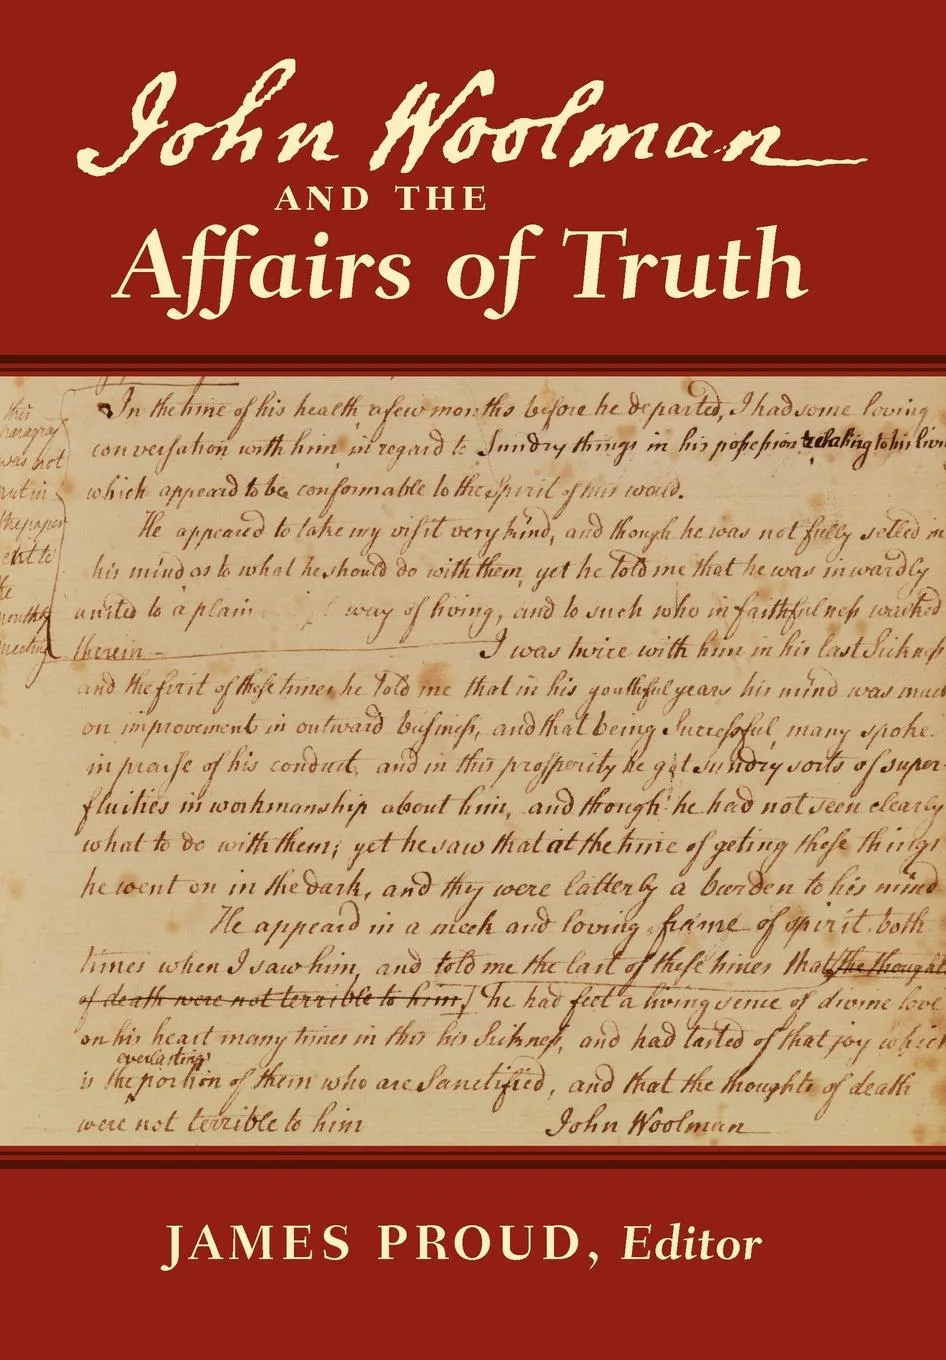 John Woolman
AND THE
Affairs of Truth
this
paragraph
was not
put in
the paper
sent to
the
monthly
meeting
In the time of his health a few months before he departed, I had some loving
conversation with him in regard to Sundry things in his possession relating to his livi
which appeard to be conformable to the Spirit of this world.
He appeared to take my visit very kind, and though he was not fully setled in
his mind as to what he should do with them, yet he told me that he was inwardly
united to a plain way of living, and to such who in faithfulness walked
therein - I was twice with him in his last Sickness
and the first of these times he told me that in his youthful years his mind was much
on improvement in outward business, and that being Successful, many spoke
in praise of his conduct, and in this prosperity he got sundry sorts of super-
fluities in workmanship about him, and though he had not seen clearly
what to do with them; yet he saw that at the time of geting those things
he went on in the dark, and they were latterly a burden to his mind
He appeard in a meek and loving frame of spirit both
times when I saw him, and told me the last of these times that the thoughts
of death were not terrible to him. he had feel a living sence of divine love
on his heart many times in this his Sickness, and had tasted of that joy which
everlasting
is the portion of them who are Sanctified, and that the thoughts of death
were not terrible to him John Woolman
JAMES PROUD, Editor